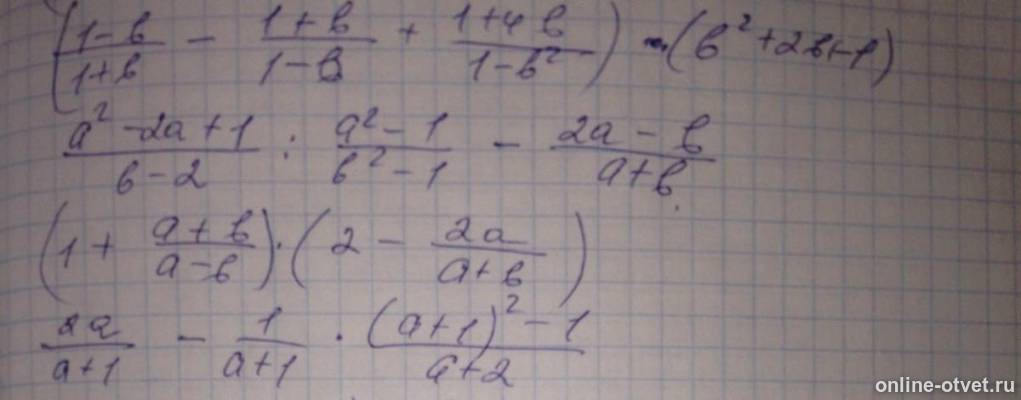 ((1-b)/(1+b) - (1+b)/(1-b) + (1+4b)/(1-b²)) · (b²+2b+1)
(a²-2a+1)/(b-2) : (a²-1)/(b²-1) - (2a-b)/(a+b)
(1 + (a+b)/(a-b)) · (2 - 2a/(a+b))
2a/(a+1) - 1/(a+1) · ((a+1)²-1)/(a+2)
online-otvet.ru